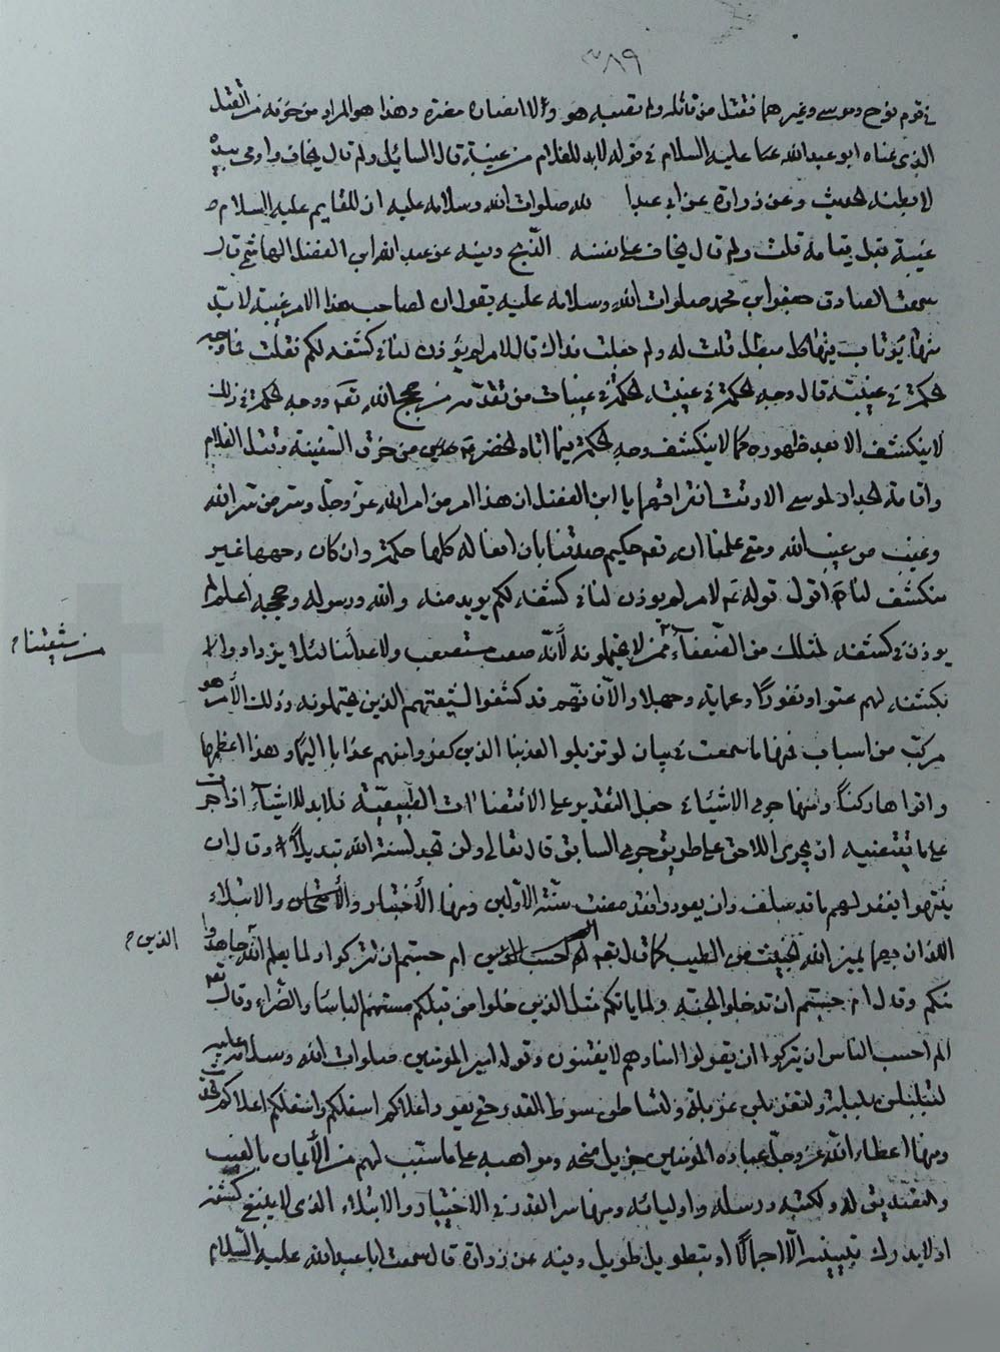 ٣٨٩
في قوم نوح وموسى وغيرهما فقتل من قائله ولم تصبه هو والا انصاره مضرة وهذا هو المراد من خوفه من القتل
الذي عناه ابو عبدالله عليه السلام في قوله لابد للغلام من غيبة قال السائل ولم قال يخاف واومى بيده
لابطنه الحديث وعن زرارة عن ابي عبدالله صلوات الله وسلامه عليه ان للقايم عليه السلام
غيبة قبل قيامه قلت ولم قال يخاف على نفسه الذبح وفيه عن عبدالله ابن الفضل الهاشمي قال
سمعت الصادق جعفر ابن محمد صلوات الله وسلامه عليه يقول ان لصاحب هذا الامر غيبة لابد
منها يرتاب فيها كل مبطل قلت له ولم جعلت فداك قال لامر لم يؤذن لنا في كشفه لكم فقلت فما وجه
الحكمة في غيبته قال وجه الحكمة في غيبته الحكمة في غيبات من تقدمه من حجج الله تعم ووجه الحكمة في ذلك
لا ينكشف الا بعد ظهوره كما لا ينكشف وجه الحكمة فيما اتاه الخضر من خرق السفينة وقتل الغلام
واقامة الجدار لموسى الا وقت افتراقهما يا ابن الفضل ان هذا امر من امر الله عز وجل وسر من سر الله
وغيب من غيب الله ومتى علمنا انه تعم حكيم صدقنا بان افعاله كلها حكمة وان كان وجهها غير
منكشف لنا اقول قوله لامر لم يؤذن لنا في كشفه لكم يريد منه والله ورسوله وحججه اعلم لم
يوذن في كشفه لمثلك من الضعفاء من شيعتنا ممن لا يحتملونه لأنه صعب مستصعب ولاعدائنا لئلا يزدادوا
بكشفه لهم عتوا ونفورا وعماية وجهلا والآن فهم قد كشفوا لشيعتهم الذين يحتملونه وذلك الأمر هو
مركب من اسباب فمنها ما سمعت في بيان لو تزيلوا لعذبنا الذين كفروا منهم عذابا اليما وهذا اعظمها
واقواها ركنا ومنها جرى الاشياء على الاقتضاات الطبيعية فلابد للاشياء اذا جرت
على ما تقتضيه ان يجرى اللاحق على طريق جرى السابق قال تعالى ولن تجد لسنة الله تبديلا وقال ان
ينتهوا يغفر لهم ما قد سلف وان يعودوا فقد مضت سنة الاولين ومنها الأختبار والأمتحان والابتلاء
اللذان بهما يميز الله الخبيث من الطيب كما قال تعم ام حسبتم ان تتركوا ولما يعلم الله الذين جاهدوا
منكم وقال ام حسبتم ان تدخلوا الجنة ولما ياتكم مثل الذين خلوا من قبلكم مستهم الباساء والضراء وقال تعم
الم احسب الناس ان يتركوا ان يقولوا امنا وهم لا يفتنون وقوله امير المؤمنين صلوات الله وسلامه عليه
لتبلبلن بلبلة ولتغربلن غربلة ولتساطن سوط القدر حتى يعود اعلاكم اسفلكم واسفلكم اعلاكم
ومنها اعطاء الله عز وجل عباده المؤمنين جزيل منحه ومواهبه على ما سبب لهم من الأيمان بالغيب
والتصديق له ولكتبه ورسله واوليائه ومنها سر القدر في الاختيار والابتلاء الذي لا ينبغي كشفه
اذ لا يدرك تبيينه الا اجمالا او بتطويل طويل وفيه عن زرارة قال سمعت ابا عبدالله عليه السلام
من شيعتنا م
الذين م